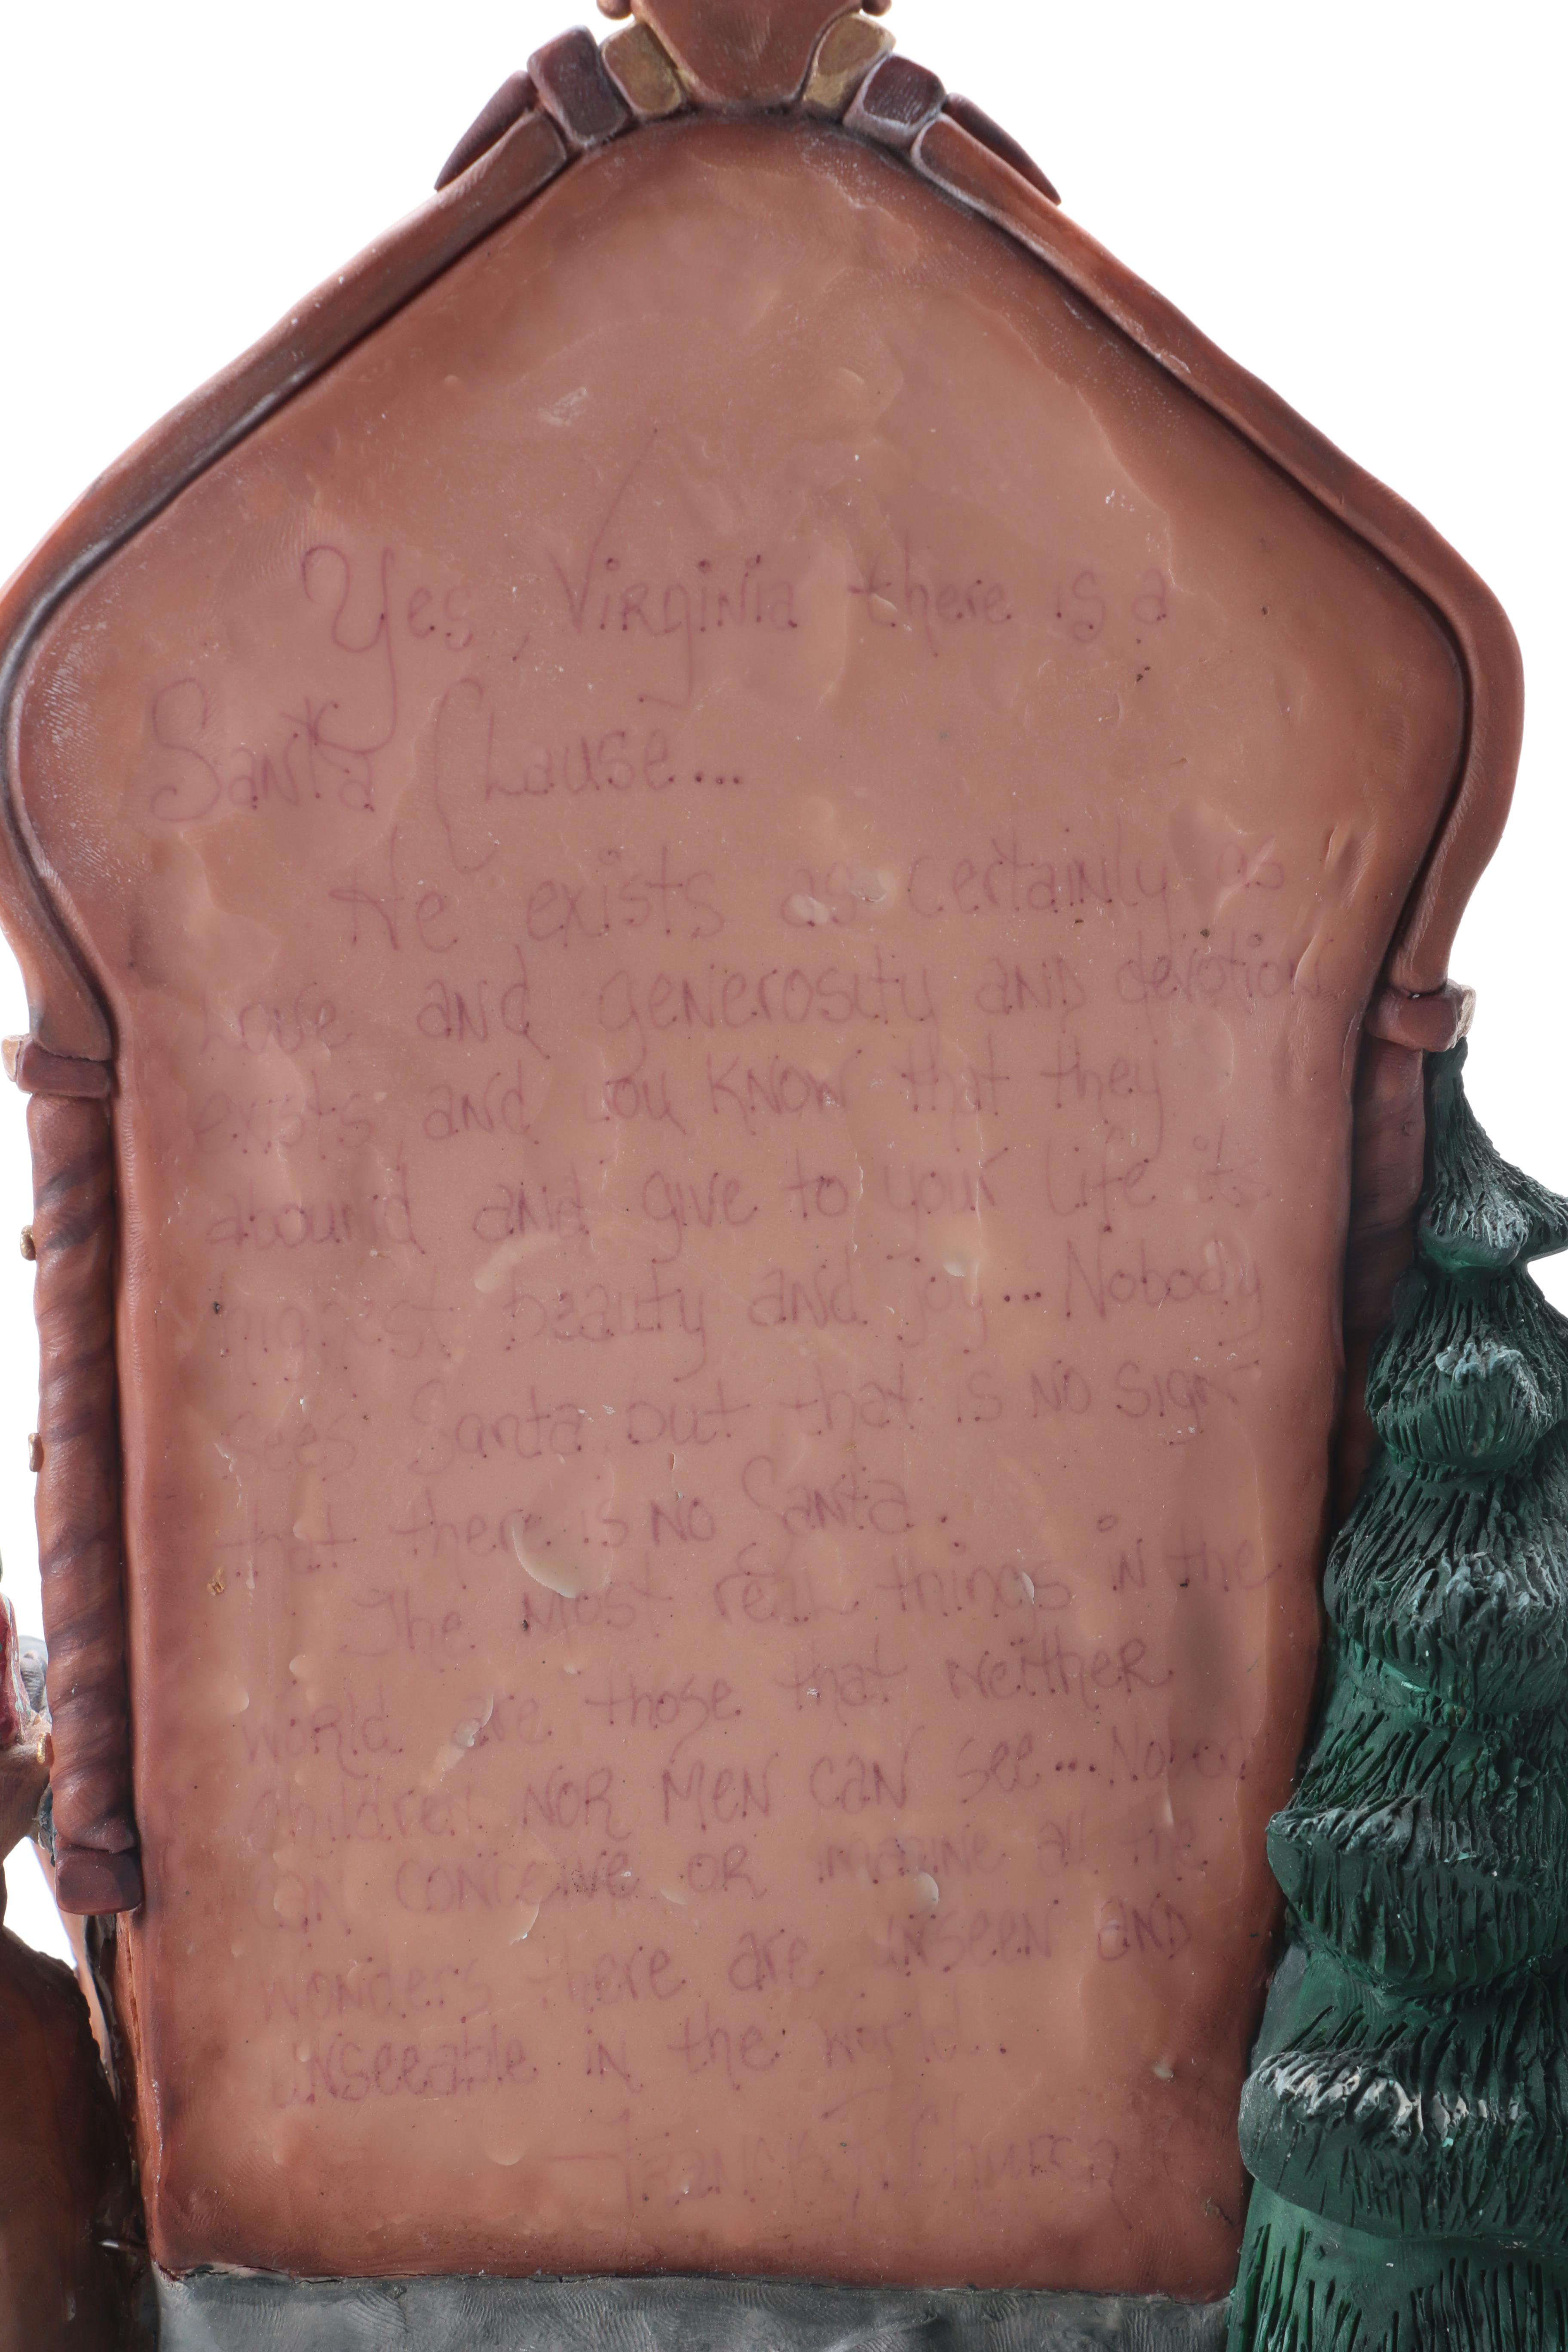 Yes, Virginia there is a
Santa Clause...
He exists as certainly as
Love and generosity and devotion
exists and you know that they
abound and give to your life its
highest beauty and joy... Nobody
sees Santa but that is no sign
that there is no Santa.
The most real things in the
world are those that neither
children nor men can see... Nobody
can conceive or imagine all the
wonders there are unseen and
unseeable in the world...